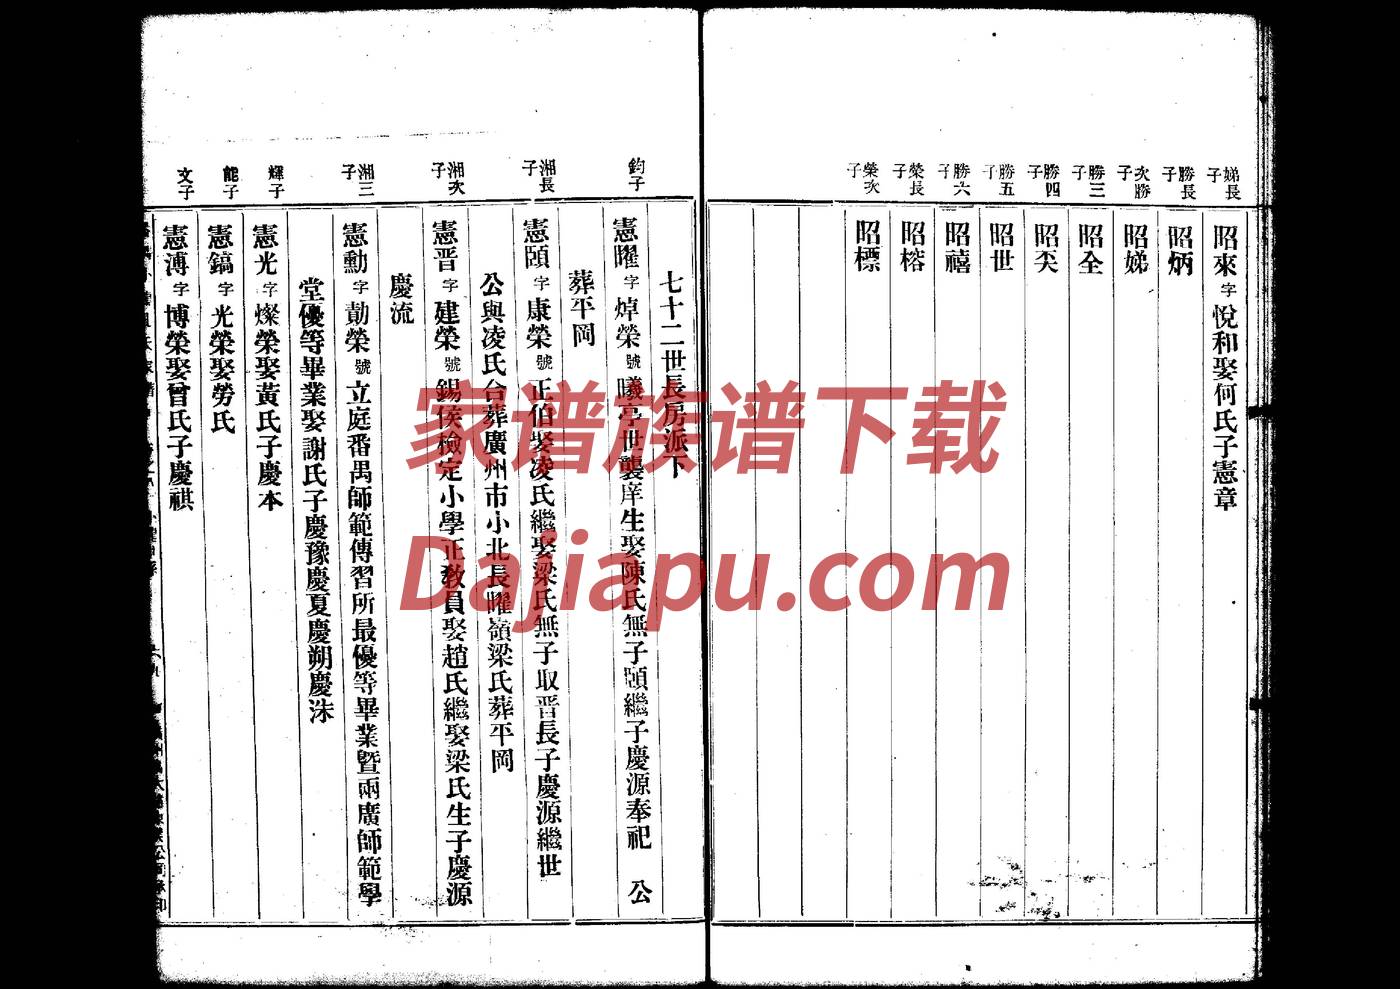 娣長子
昭來字悅和娶何氏子憲章
勝長子
昭炳
次勝子
昭娣
勝三子
昭全
勝四子
昭夭
勝五子
昭世
勝六子
昭禧
榮長子
昭榕
榮次子
昭標
七十二世長房派下
鈞子
憲曜字焯榮號曦亭世襲庠生娶陳氏無子頤繼子慶源奉祀 公
葬平岡
湘長子
憲頤字康榮號正伯娶凌氏繼娶梁氏無子取晋長子慶源繼世
公與凌氏台葬廣州市小北長曜嶺梁氏葬平岡
湘次子
憲晋字建榮號錫侯檢定小學正教員娶趙氏繼娶梁氏生子慶源
慶流
湘三子
憲勳字勷榮號立庭番禺師範傳習所最優等畢業暨兩廣師範學
堂優等畢業娶謝氏子慶豫慶夏慶朔慶洙
輝子
憲光字燦榮娶黃氏子慶本
能子
憲鎬字光榮娶勞氏
文子
憲溥字博榮娶曾氏子慶祺
家谱族谱下载
Dajiapu.com